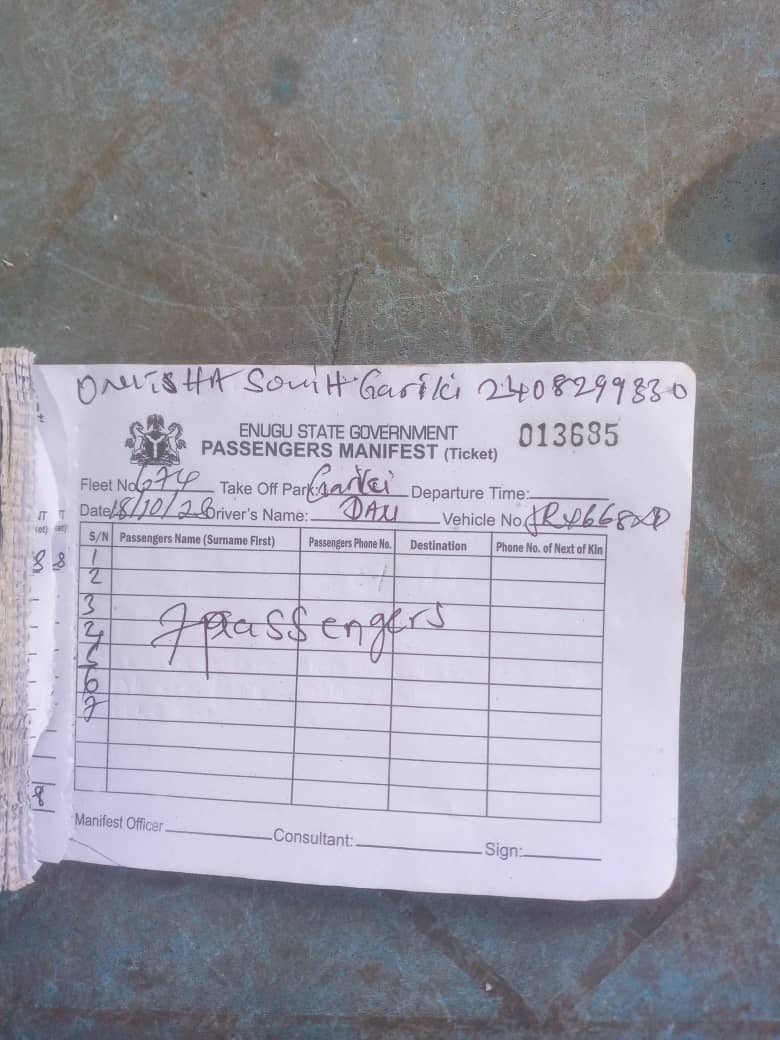 ONUISHA South Gariki 2408299830
ENUGU STATE GOVERNMENT
PASSENGERS MANIFEST (Ticket)
013685
Fleet No. 674 Take Off Park: Gariki Departure Time:
Date 18/10/ Driver's Name: Vehicle No
S/N Passengers Name (Surname First) Passengers Phone No. Destination Phone No. of Next of Kin
1
2
3
4
5
6
7
7 passengers
Manifest Officer Consultant: Sign:
8 8
8